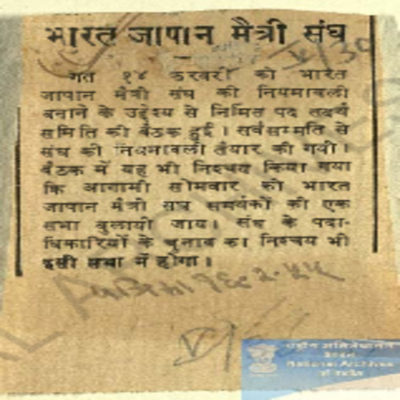 भारत जापान मैत्री संघ
गत १४ फरवरी को भारत
जापान मैत्री संघ की नियमावली
बनाने के उद्देश्य से निर्मित पद तदर्थ
समिति की बैठक हुई। सर्वसम्मति से
संघ की नियमावली तैयार की गयी।
बैठक में यह भी निश्चय किया गया
कि आगामी सोमवार को भारत
जापान मैत्री संघ समर्थकों की एक
सभा बुलायी जाय। संघ के पदा-
धिकारियों के चुनाव का निश्चय भी
इसी सभा में होगा।
National Archives